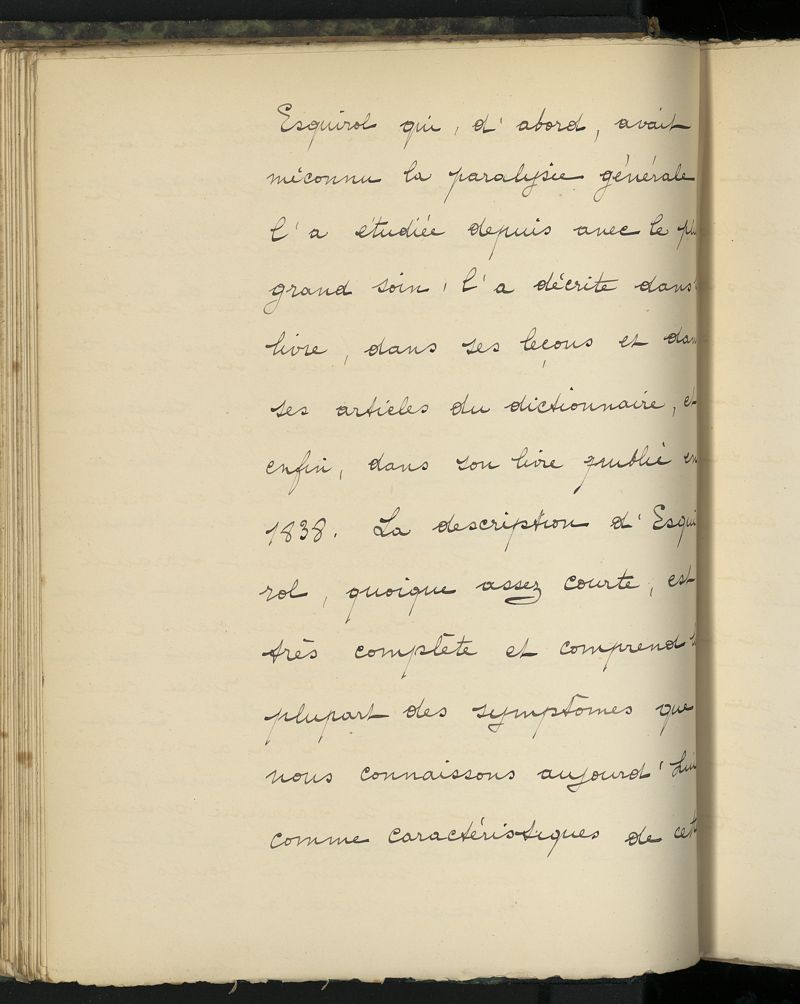 Esquirol qui, d'abord, avait
méconnu la paralysie générale
l'a étudiée depuis avec le pl
grand soin, l'a décrite dans
livre, dans ses leçons et dan
ses articles du dictionnaire, et
enfin, dans son livre publié en
1838. La description d'Esqui
rol, quoique assez courte, est
très complète et comprend l
plupart des symptômes que
nous connaissons aujourd'hui
comme caractéristiques de cet